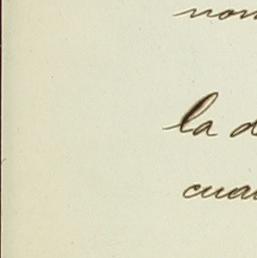 non
la d
cuan